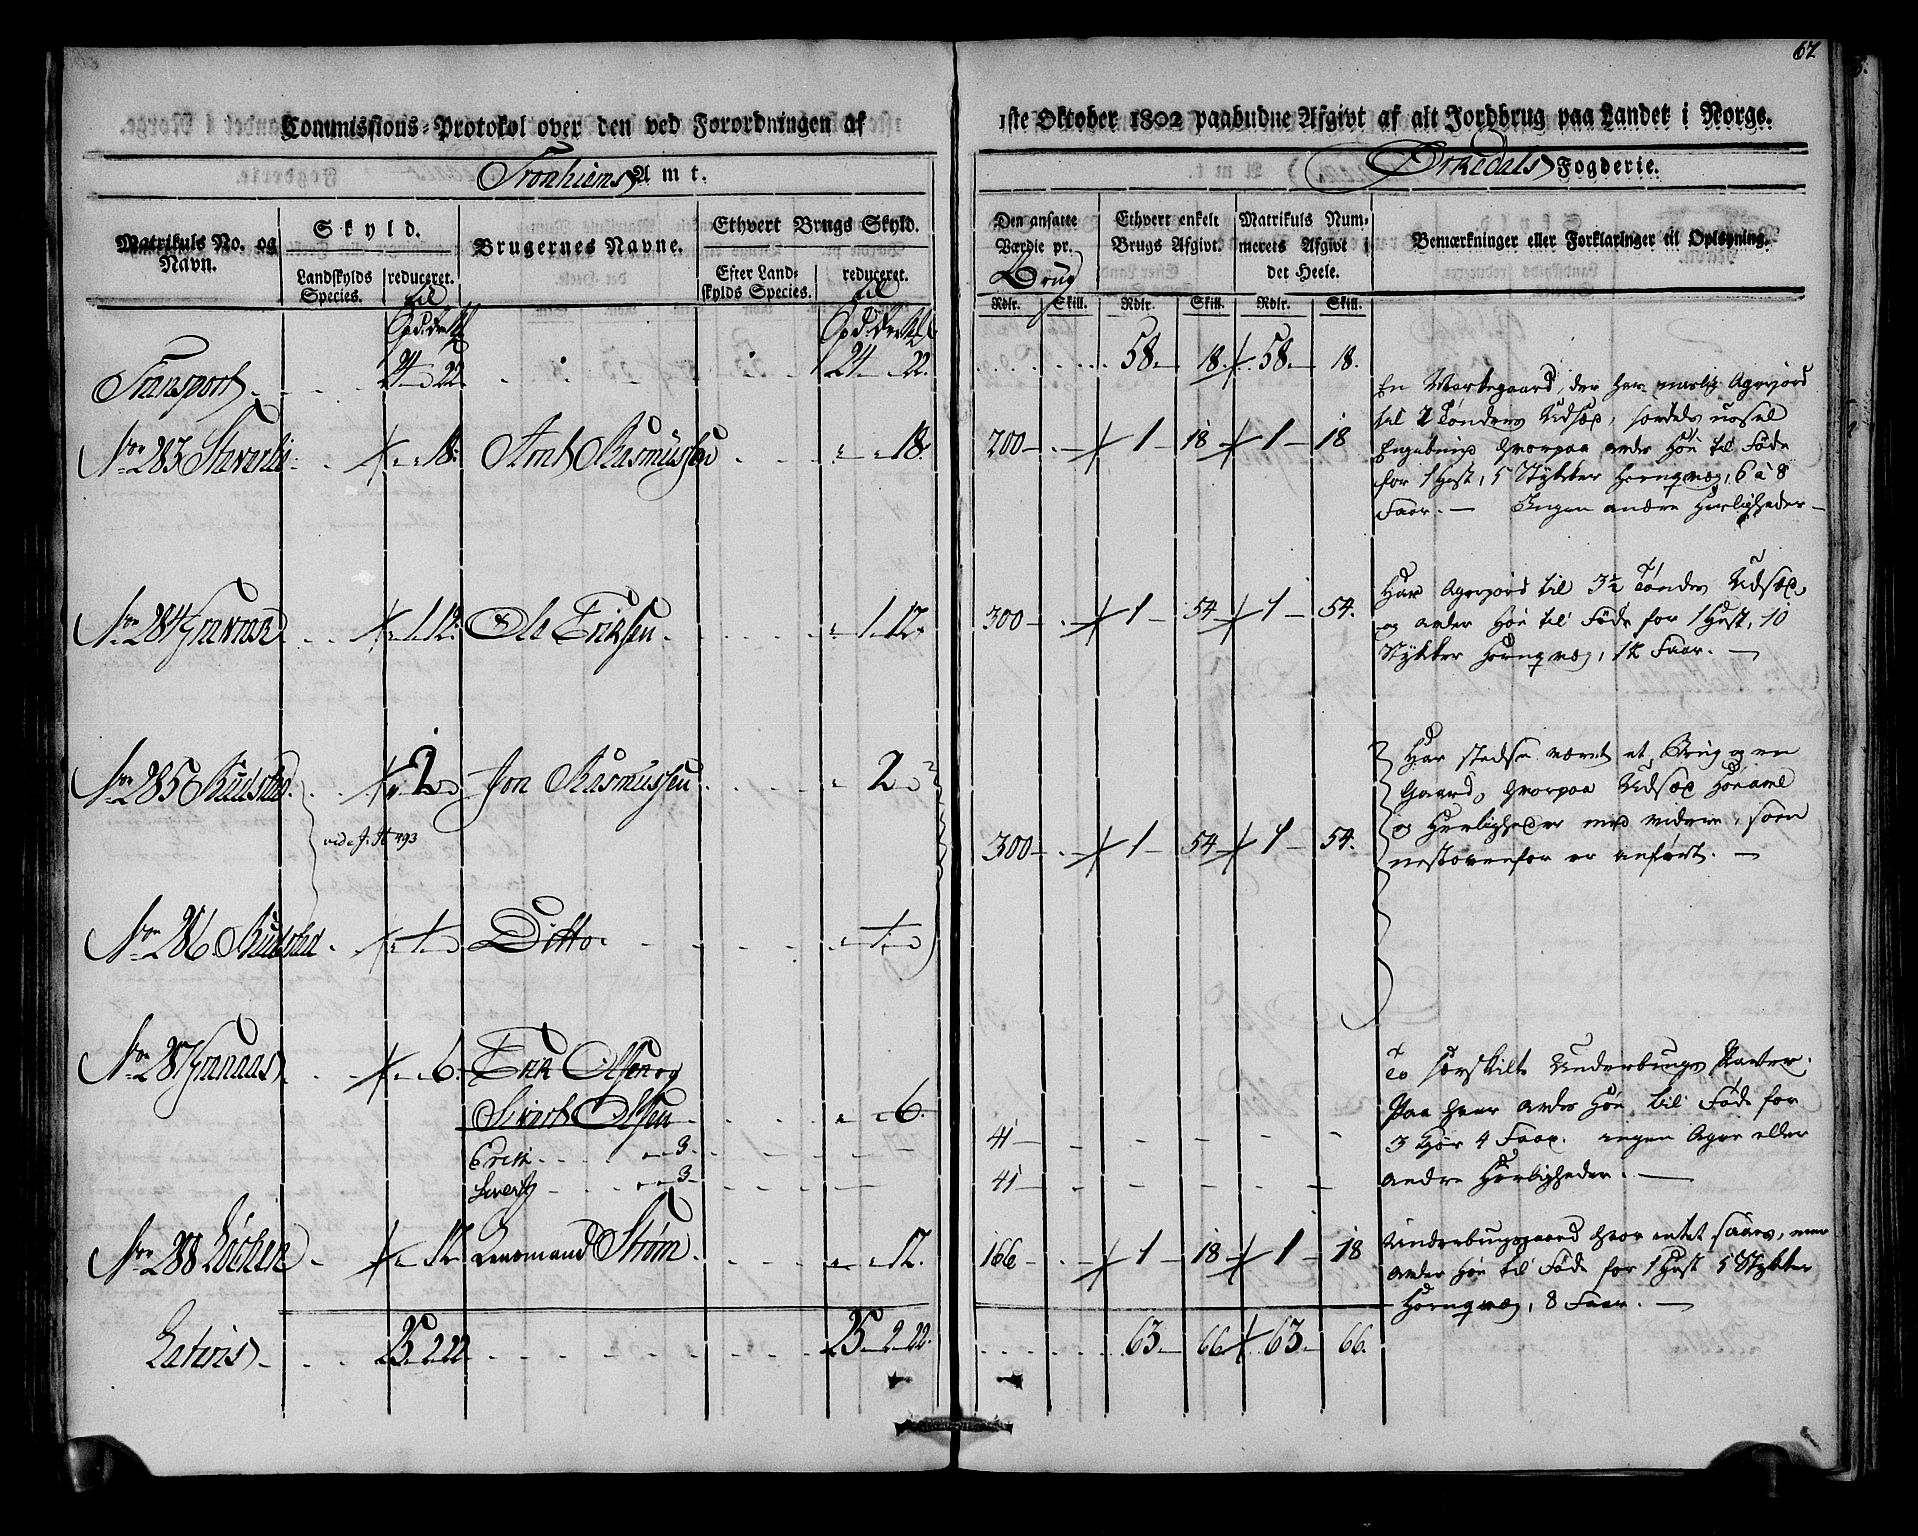 62
Commissions-Protokol over den ved Forordningen af
1ste Oktober 1802 paabudne Afgivt af alt Jordbrug paa Landet i Norge.
Tronhiems Amt.
Orkedals Fogderie.
Matrikuls No. og Navn.
Skyld.
Landskylds Species.
reduceret.
Brugernes Navne.
Ethvert Brugs Skyld.
Efter Landskylds Species.
reduceret.
Den ansatte Værdie pr. Brug
Rdlr. Skill.
Ethvert enkelt Brugs Afgivt.
Rdlr. Skill.
Matrikuls Nummerets Afgivt i det Heele.
Rdlr. Skill.
Bemærkninger eller Forklaringer til Oplysning.
Transport 24 - 22 24 - 22. 58 18 58 18.
No 283 18. Arnt Rasmussen 18. 200 1 18 1 18
En Markegaard, der har maalig Agerjord
til 2 Tønders Udsæd,
hvorpaa avles Høe til Føde
for 1 Hest, 5 Stykker Hornqvæg, 6 à 8
Faar. — Ingen andre Herligheder —
No 284 1.12. Ole Eriksen 1.12. 300 1 54 1 54.
Har Agerjord til 3½ Tønders Udsæd,
og avler Høe til Føde for 1 Hest, 10
Stykker Hornqvæg, 12 Faar. —
No 285 2 Jon Rasmussen 2
300 1 54 1 54.
Har stedse været et Brug og en
Gaard, hvorpaa Udsæd Høeavl
og Herligheder med videre, som
næstovenfor er anført. —
No 286 1 Ditto 1
No 287 Granaas 6. Erik Olsen og
Sivert Olsen 6.
Erik 3. 41
Sivert 3 41
To særskilte Underbrugs Parter.
Paa hver avles Høe til Føde for
3 Kjør 4 Faar. ingen Ager eller
andre Herligheder. —
No 288 Løchen 12 Lensmand Strøm 12. 166 1 18 1 18
Underbrugsgaard hvor intet saaes, men
avler Høe til Føde for 1 Hest 5 Stykker
Hornqvæg, 8 Faar. —
Lateris 25 2 22 25 2 22. 63 66 63 66.